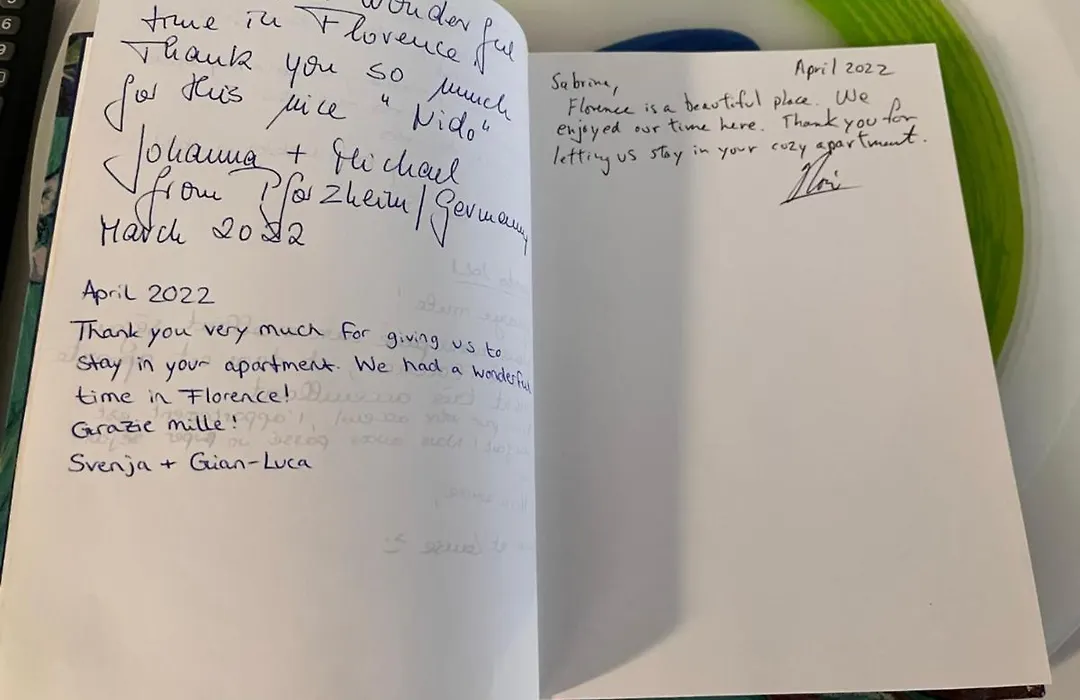 wonderful
time in Florence
Thank you so much
for this nice "Nido"
Johanna + Michael
from Pforzheim/Germany
March 2022
April 2022
Thank you very much for giving us to
stay in your apartment. We had a wonderful
time in Florence!
Grazie mille!
Svenja + Gian-Luca
April 2022
Sabrina,
Florence is a beautiful place. We
enjoyed our time here. Thank you for
letting us stay in your cozy apartment.